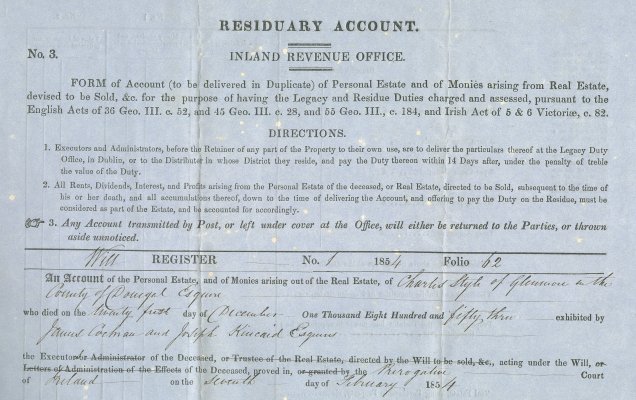 RESIDUARY ACCOUNT.
No. 3.
INLAND REVENUE OFFICE.
FORM of Account (to be delivered in Duplicate) of Personal Estate and of Monies arising from Real Estate,
devised to be Sold, &c. for the purpose of having the Legacy and Residue Duties charged and assessed, pursuant to the
English Acts of 36 Geo. III. c. 52, and 45 Geo. III. c. 28, and 55 Geo. III., c. 184, and Irish Act of 5 & 6 Victoriæ, c. 82.
DIRECTIONS.
1. Executors and Administrators, before the Retainer of any part of the Property to their own use, are to deliver the particulars thereof at the Legacy Duty
Office, in Dublin, or to the Distributer in whose District they reside, and pay the Duty thereon within 14 Days after, under the penalty of treble
the value of the Duty.
2. All Rents, Dividends, Interest, and Profits arising from the Personal Estate of the deceased, or Real Estate, directed to be Sold, subsequent to the time of
his or her death, and all accumulations thereof, down to the time of delivering the Account, and offering to pay the Duty on the Residue, must be
considered as part of the Estate, and be accounted for accordingly.
3. Any Account transmitted by Post, or left under cover at the Office, will either be returned to the Parties, or thrown
aside unnoticed.
Will REGISTER No. 1 1854 Folio 62
An Account of the Personal Estate, and of Monies arising out of the Real Estate, of Charles Style of Glenmore in the
County of Donegal Esquire
who died on the twenty first day of December One Thousand Eight Hundred and fifty three exhibited by
James Cochran and Joseph Kincaid Esquires
the Executors or Administrator of the Deceased, or Trustee of the Real Estate, directed by the Will to be sold, &c., acting under the Will, or
Letters of Administration of the Effects of the Deceased, proved in, or granted by the Prerogative Court
of Ireland on the Seventh day of February 1854